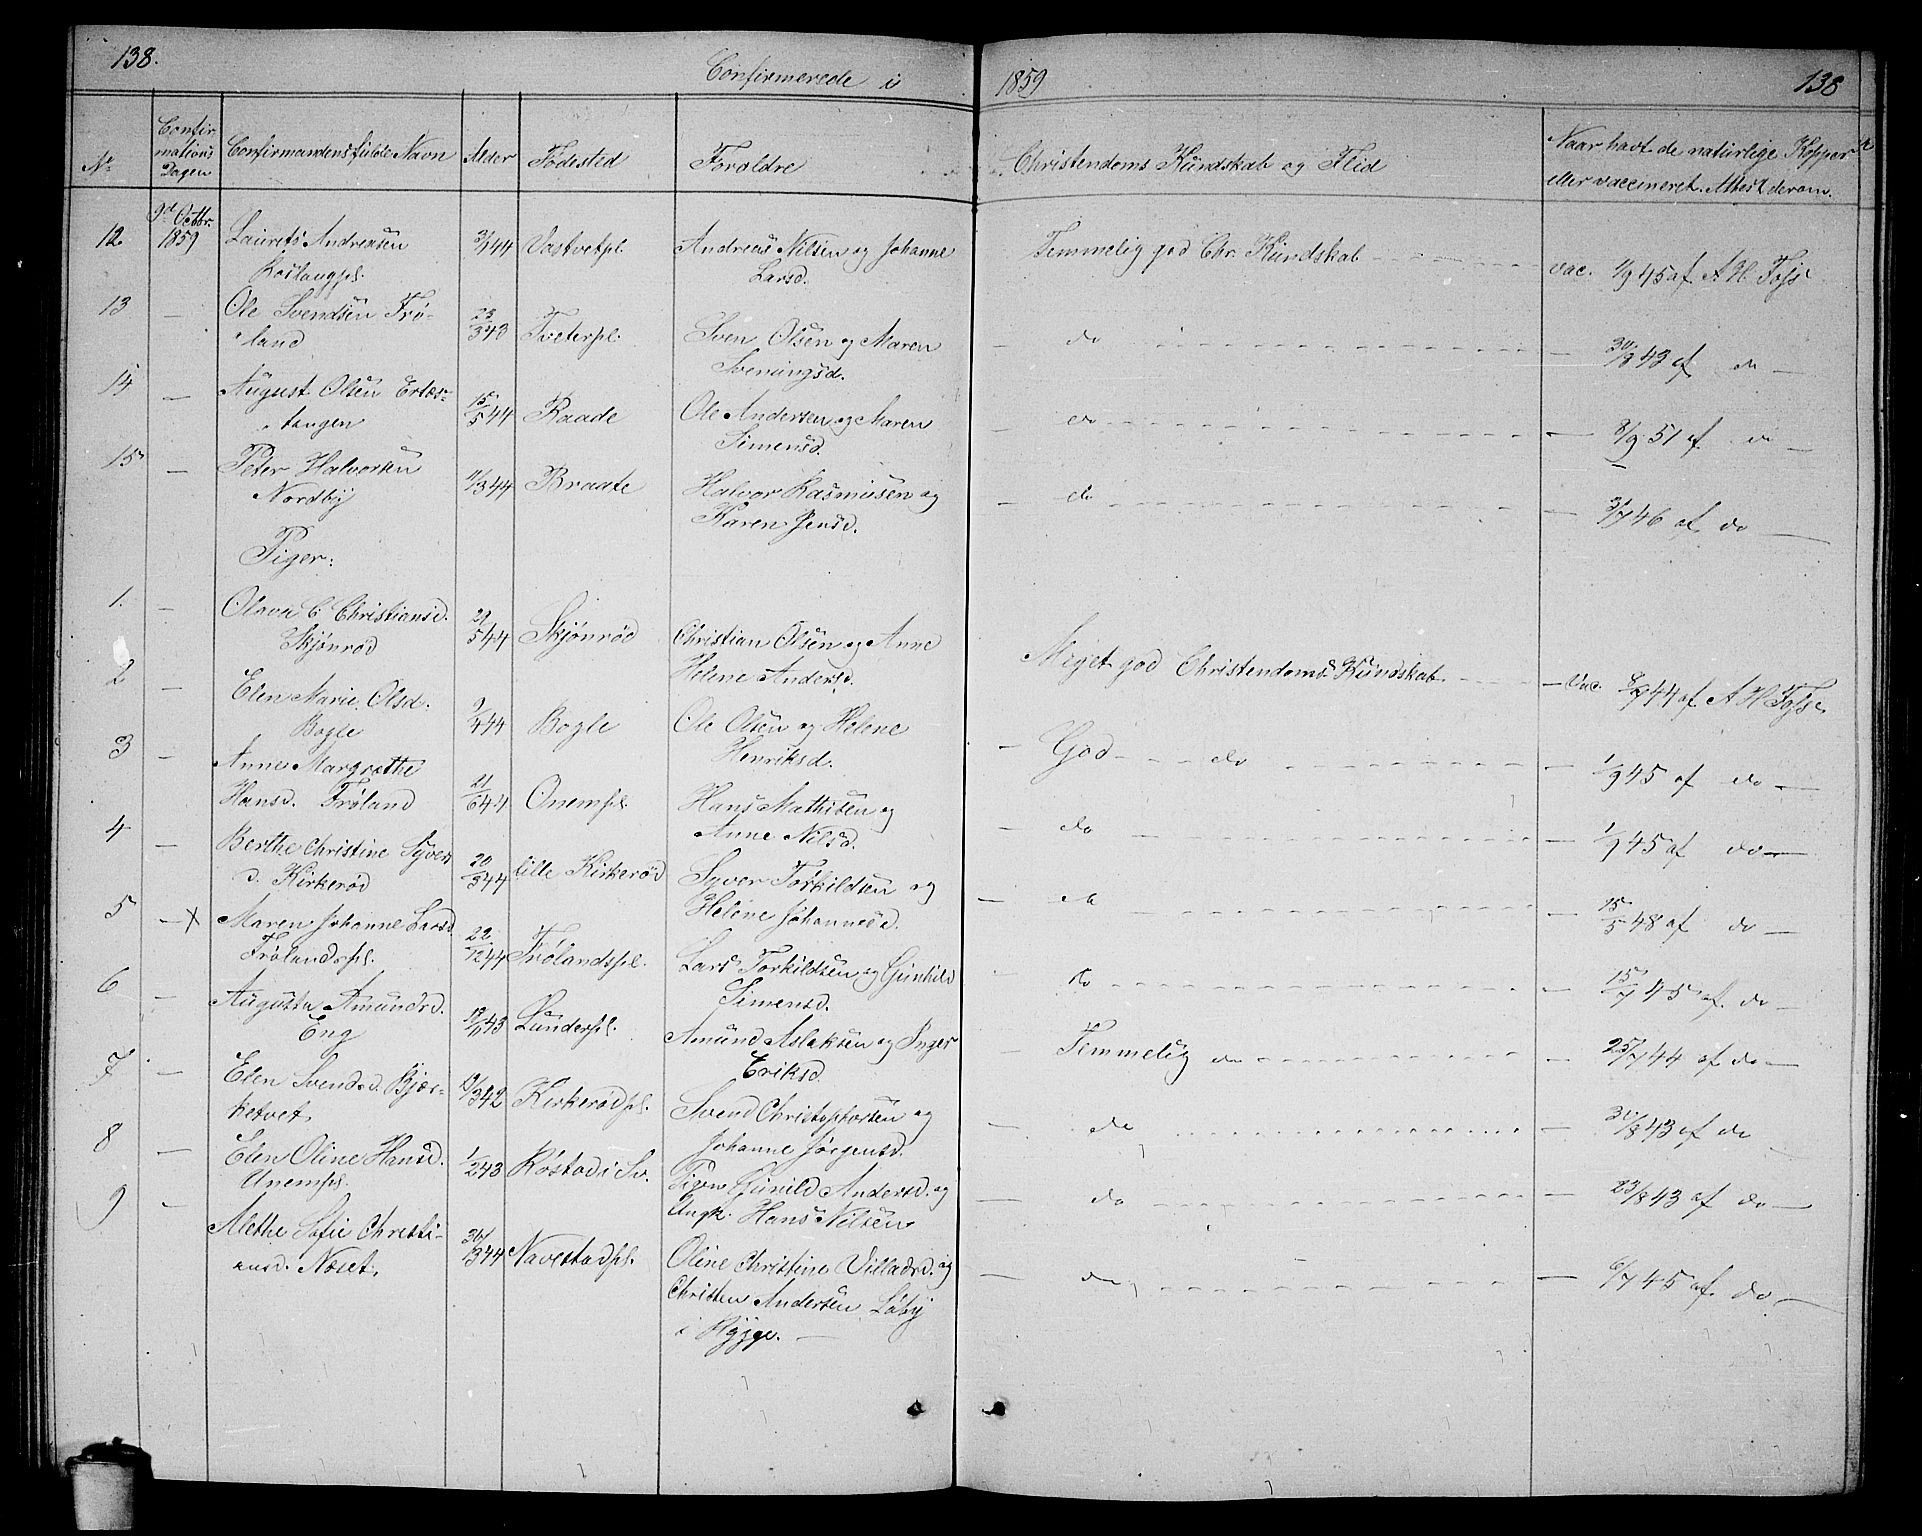 138.
Confirmerede i
1859
138
No
Confir-
mations
Dagen
Confirmandens fulde Navn
Alder
Fødested
Forældre
Christendoms Kundskab og Flid
Naar havt de naturlige Kopper
eller vaccineret. Attest derom.
12 9de Octbr. Laurits Andreasen 3/1 44 Vastvetpl. Andreas Nilsen og Johanne Temmelig god Chr. Kundskab vac. 1/9 45 af A H. Fojs
1859 Larsd.
13 — Ole Svendsen Frø- 23/3 43 Tveterpl. Sven Olsen og Maren — do — 30/8 43 af do —
land Sveningsd.
14 — August Olsen 15/5 44 Raade Ole Andersen og Maren — do — 8/9 51 af do —
tangen Simensd.
15 — Peter Halvorsen 11/3 44 Braate Halvor Rasmusen og — do — 3/7 46 af do —
Nordby Karen Jensd.
Piger:
1. — Olava C. Christiansd. 29/5 44 Skjønrød Christian Olsen og Anne Meget god Christendoms Kundskab — Vac. 8/9 44 af A H Fojs
Skjønrød Helene Andersd.
2 — Elen Marie Olsd. 9/4 44 Bogle Ole Olsen og Helene — God do — 1/9 45 af do —
Bogle Henriksd.
3 — Anne Margrethe
Hansd. Frøland 21/6 44 Onempl. Hans Mathisen og — do — 1/9 45 af do —
Anne Nilsd.
4 — Berthe Christine Syvers
d. Kirkerød 20/3 44 lille Kirkerød Syver Torkildsen og — do — 15/5 48 af do —
Helene Johannesd.
5 — x Maren Johanne Larsd.
Frølandspl. 22/12 44 Frølandspl. Lars Torkildsen og Gunhild — do — 15/7 45 af do —
Simensd.
6 — Augusta Amundsd.
Eng 19/11 43 Lunderpl. Amund Aslaksen og Inger — Temmelig do — 25/7 44 af do —
Eriksd.
7 — Elen Svendsd. Bjær-
ketvet. 19/3 42 Kirkerødpl. Svend Christophersen og — do — 31/8 43 af do
Johanne Jørgensd.
8 — Elen Oline Hansd. 1/2 43 Røstad i Sv. Pigen Gunild Andersd. og — do — 23/8 43 af do —
Unempl. Ungk. Hans Nilsen
9 — Alethe Sofie Christi-
ansd. Næset. 30/3 44 Navestadpl. Oline Christine Villadsd. og — do — 6/7 45 af do —
Christen Andersen Løby
i Rygge. —